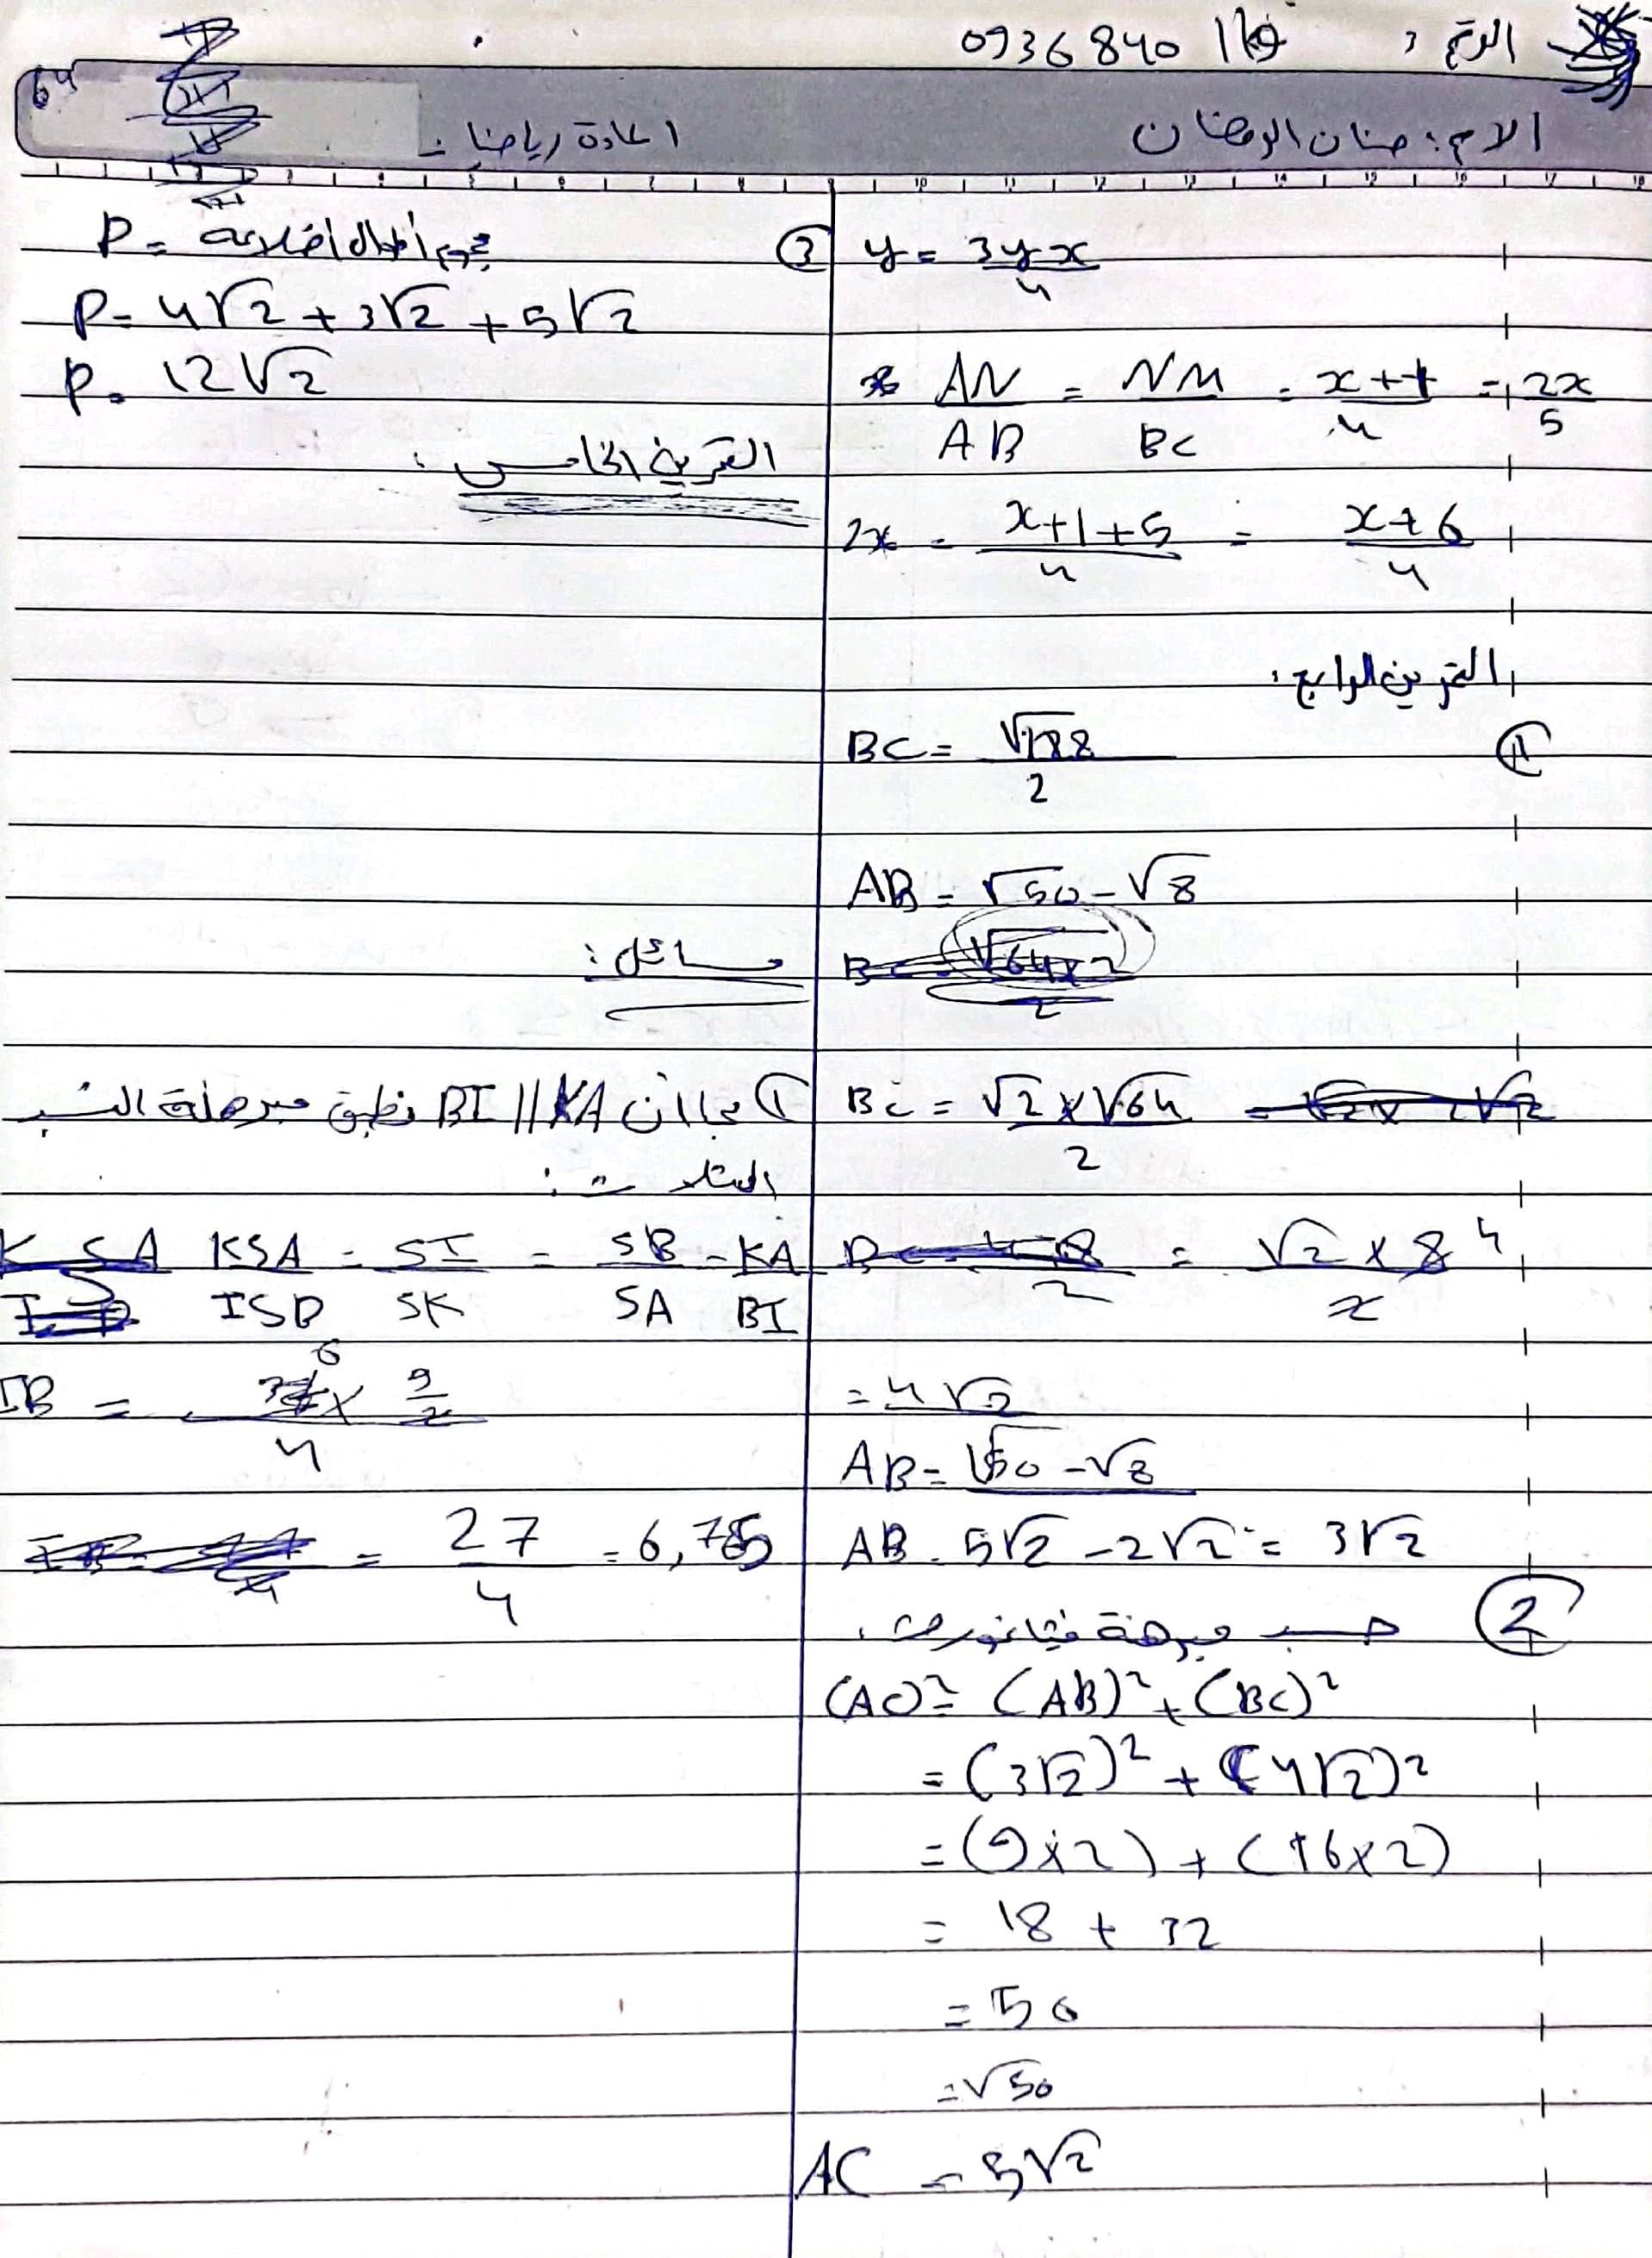 الرقم : 0936840
64
الاسم : حنان الرمضان
المادة رياضيات
y = 3yx / 4
AN / AB = NM / BC = x+1 / 4 = 2x / 5
2x = x+1+5 / 4 = x+6 / 4
التمرين الرابع :
① BC = √128 / 2
AB = √50 - √8
BC = √2 × √64 / 2
= √2 × 8 / 2 4
= 4√2
AB = √50 - √8
AB = 5√2 - 2√2 = 3√2
② حسب مبرهنة فيثاغورث :
(AC)² = (AB)² + (BC)²
= (3√2)² + (4√2)²
= (9×2) + (16×2)
= 18 + 32
= 50
= √50
AC = 5√2
③ P = مجموع أطوال أضلاعه
P = 4√2 + 3√2 + 5√2
P = 12√2
التمرين الخامس :
مسائل :
① بما أن BI // KA نطبق مبرهنة النسب
الثلاث :
KSA / ISB = SI / SK = SB / SA = KA / BI
IB = 6 × 9/2 / 4
= 27 / 4 = 6,75